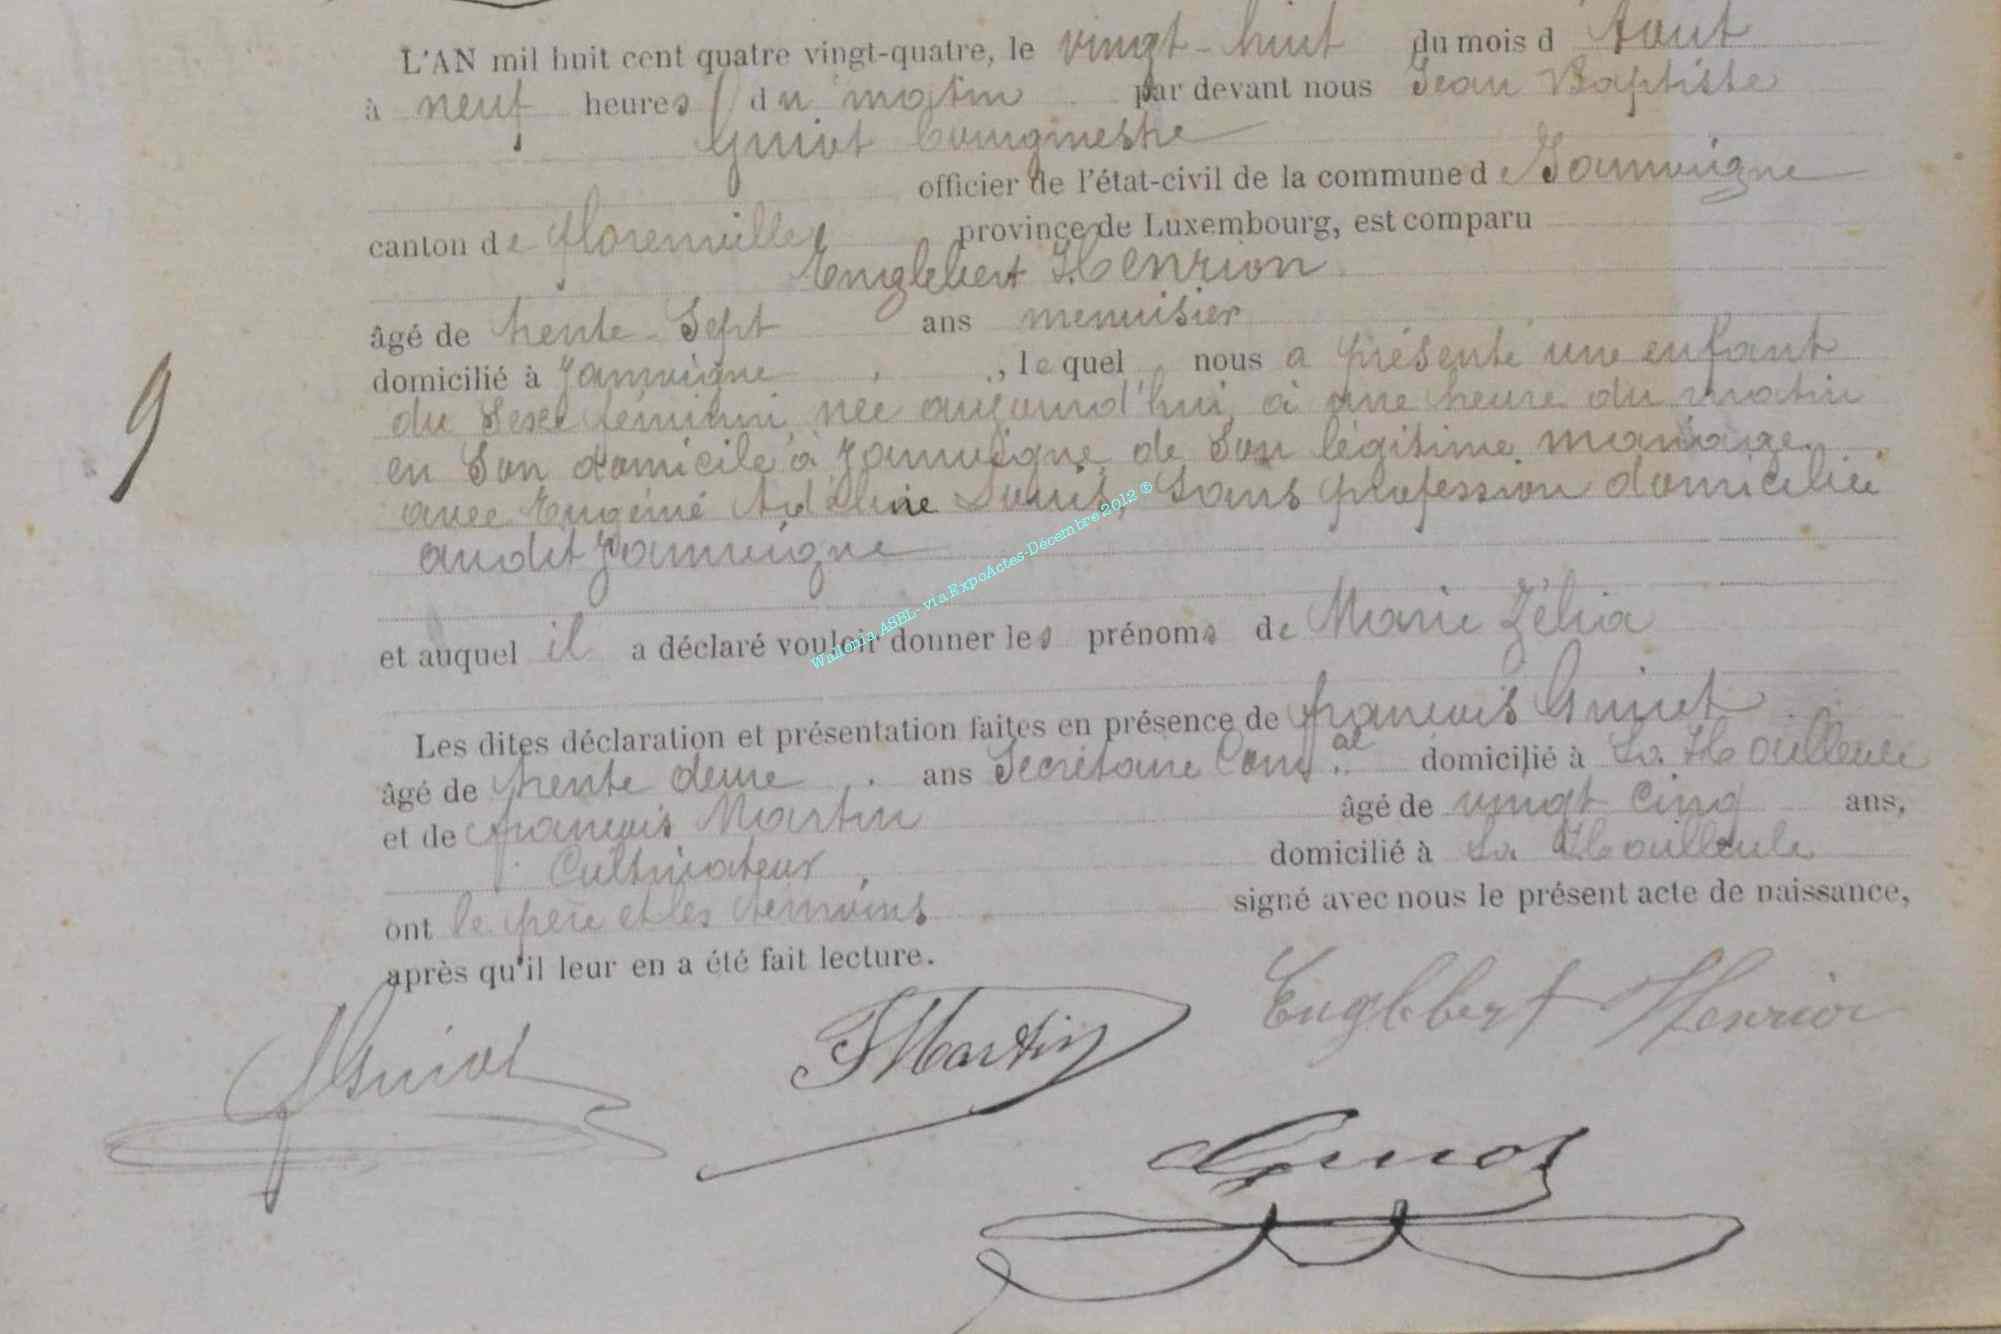 L'AN mil huit cent quatre vingt-quatre, le vingt-huit du mois d Aout
à neuf heures du matin par devant nous Jean Baptiste
Guiot Bourgmestre
officier de l'état-civil de la commune de Jamoigne
canton de florenville province de Luxembourg, est comparu
Englebert Henrion
âgé de trente-Sept ans menuisier
domicilié à Jamoigne, lequel nous a présenté une enfant
du Sexe féminin, née aujourd'hui, à une heure du matin
en Son domicile à Jamoigne de Son légitime mariage
avec Eugénie Adeline Louis, Sans profession domiciliée
audit Jamoigne
et auquel il a déclaré vouloir donner les prénoms de Marie Zélia
Les dites déclaration et présentation faites en présence de françois Guiot
âgé de trente deux ans Secrétaire Com.al domicilié à La
et de françois Martin âgé de vingt cinq ans,
Cultivateur, domicilié à La
ont le père et les témoins signé avec nous le présent acte de naissance,
après qu'il leur en a été fait lecture.
9
Wallonia ASBL- via ExpoActes-Décembre 2012 ®
Englebert Henrion
FMartin
Guiot
Guiot